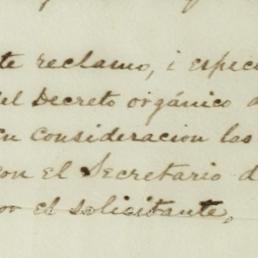 te reclamo, i especi
el Decreto orgánico d
en consideracion las
con el Secretario d
por el solicitante,